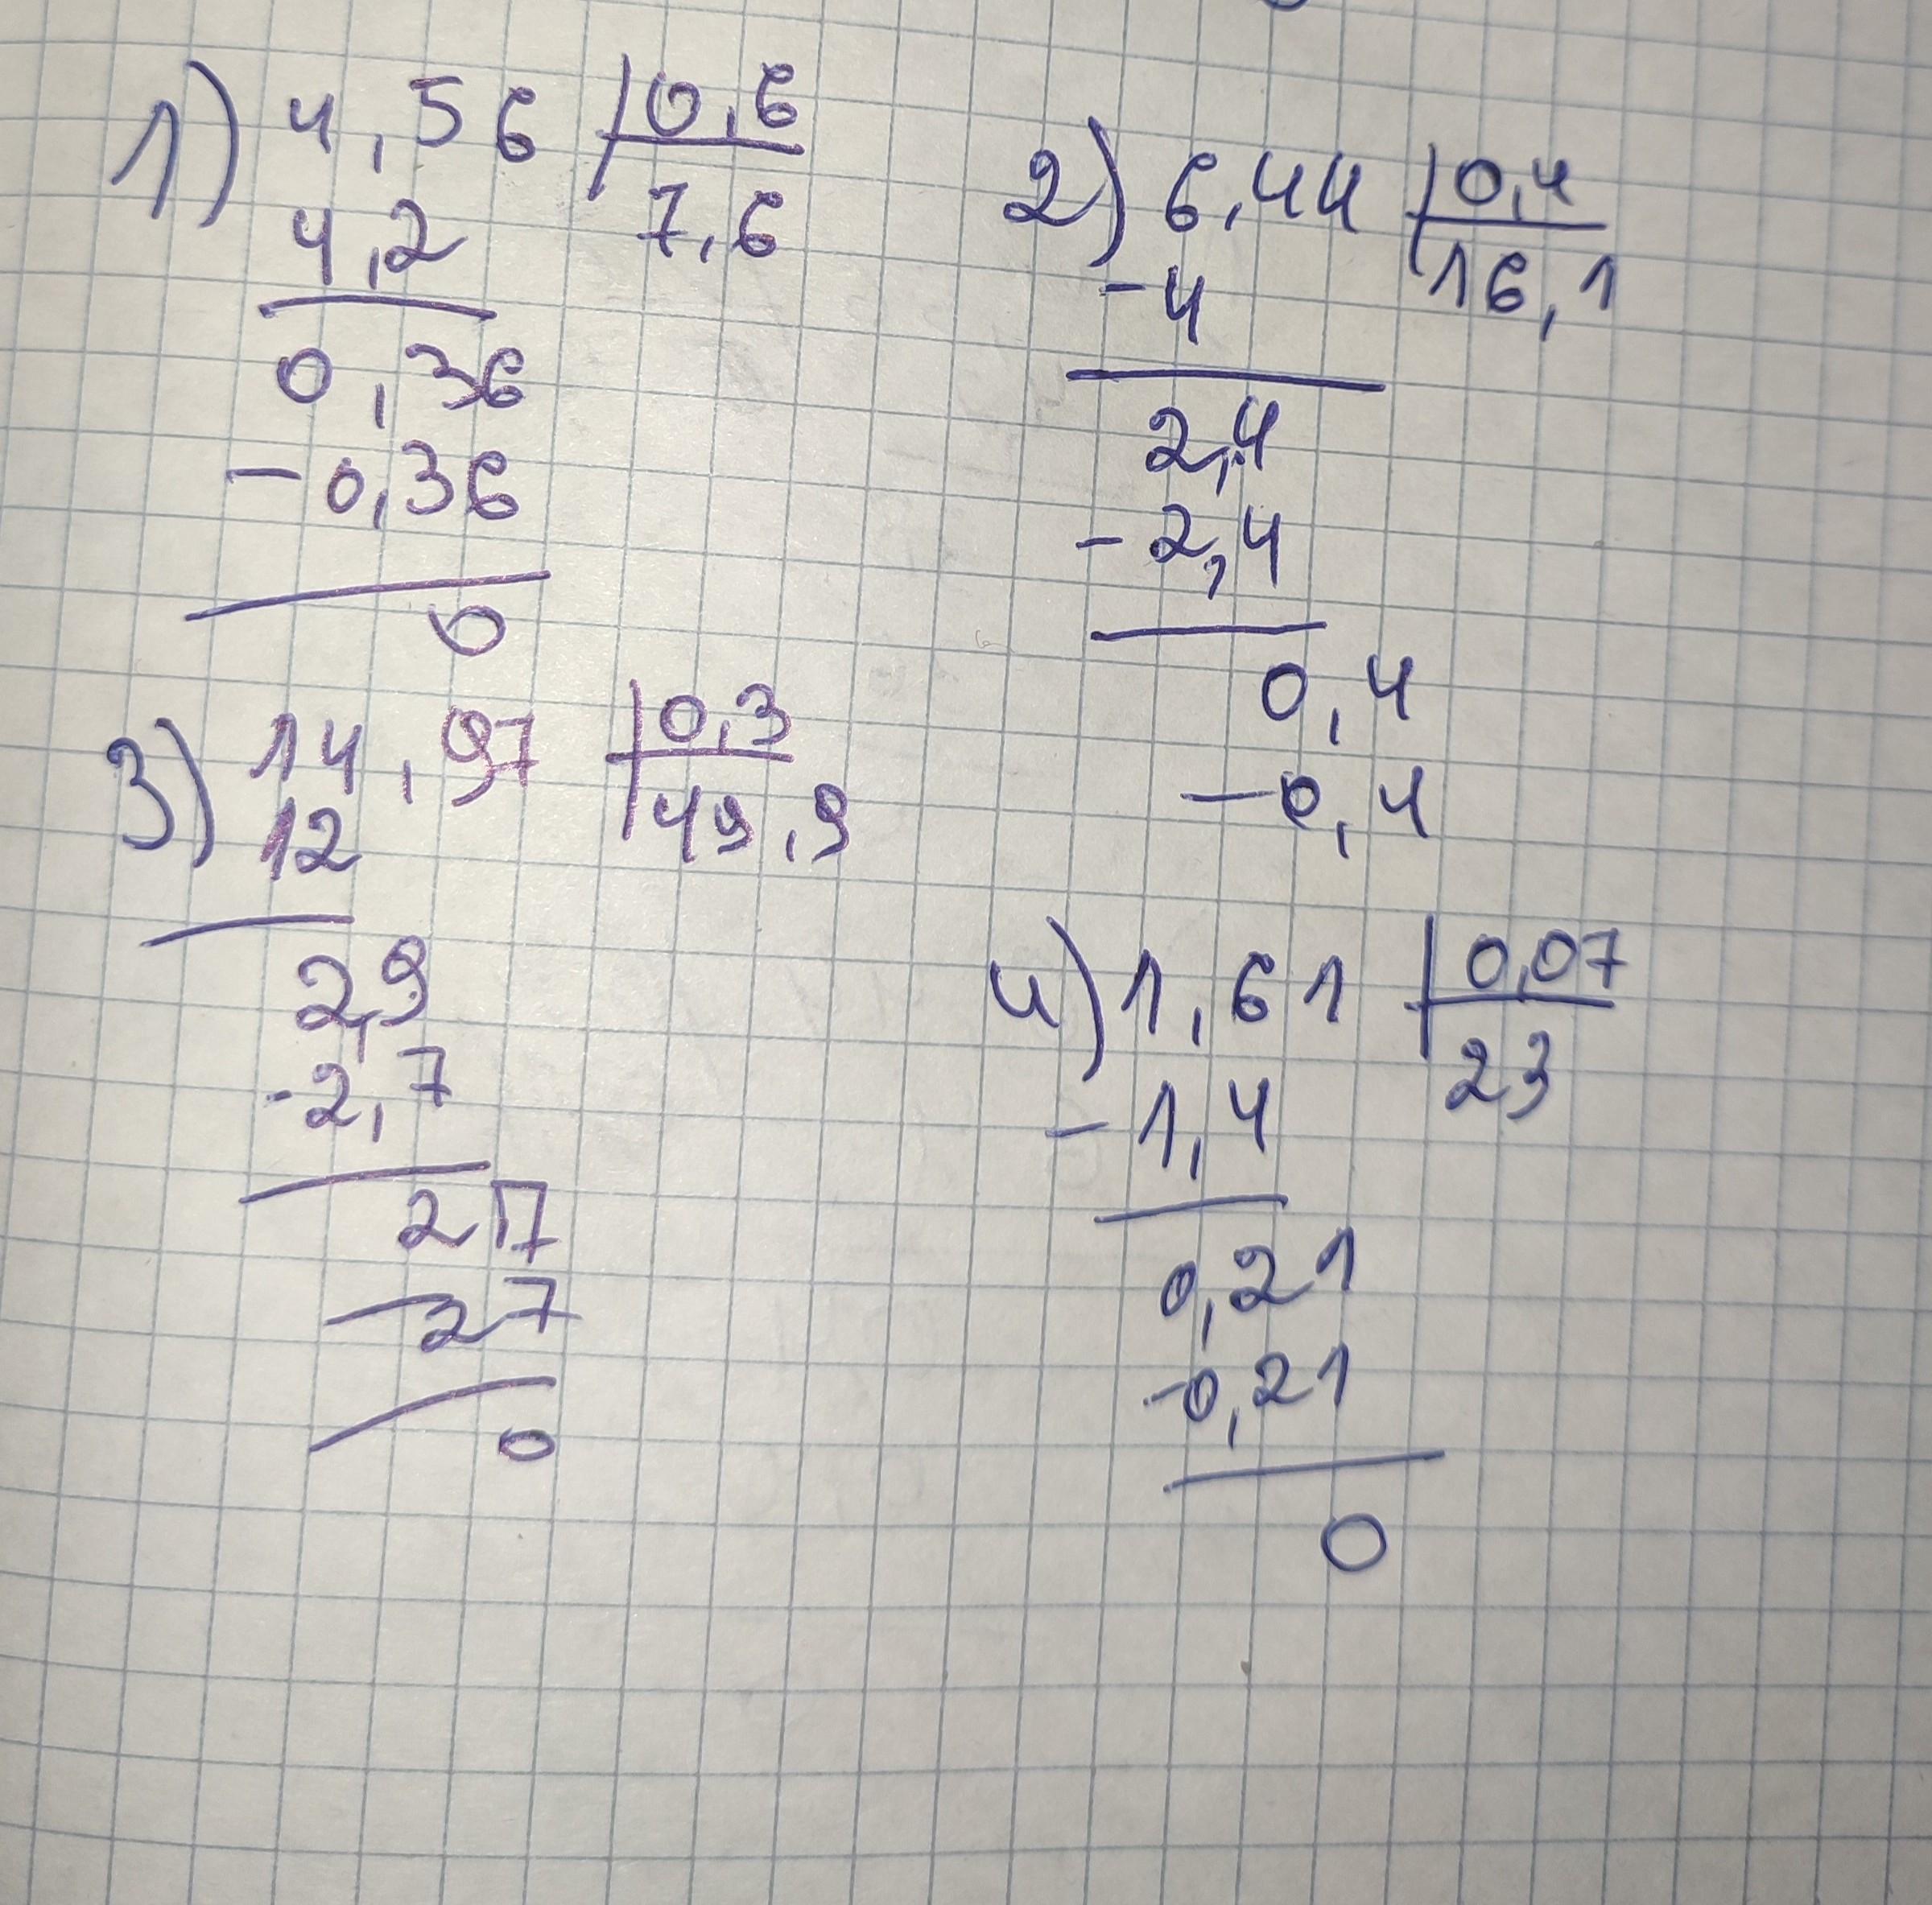 1) 4,56 | 0,6
4,2 | 7,6
0,36
-0,36
0
2) 6,44 | 0,4
-4 | 16,1
2,4
-2,4
0,4
-0,4
3) 14,97 | 0,3
12 | 49,9
2,9
-2,7
27
-27
0
4) 1,61 | 0,07
-1,4 | 23
0,21
-0,21
0